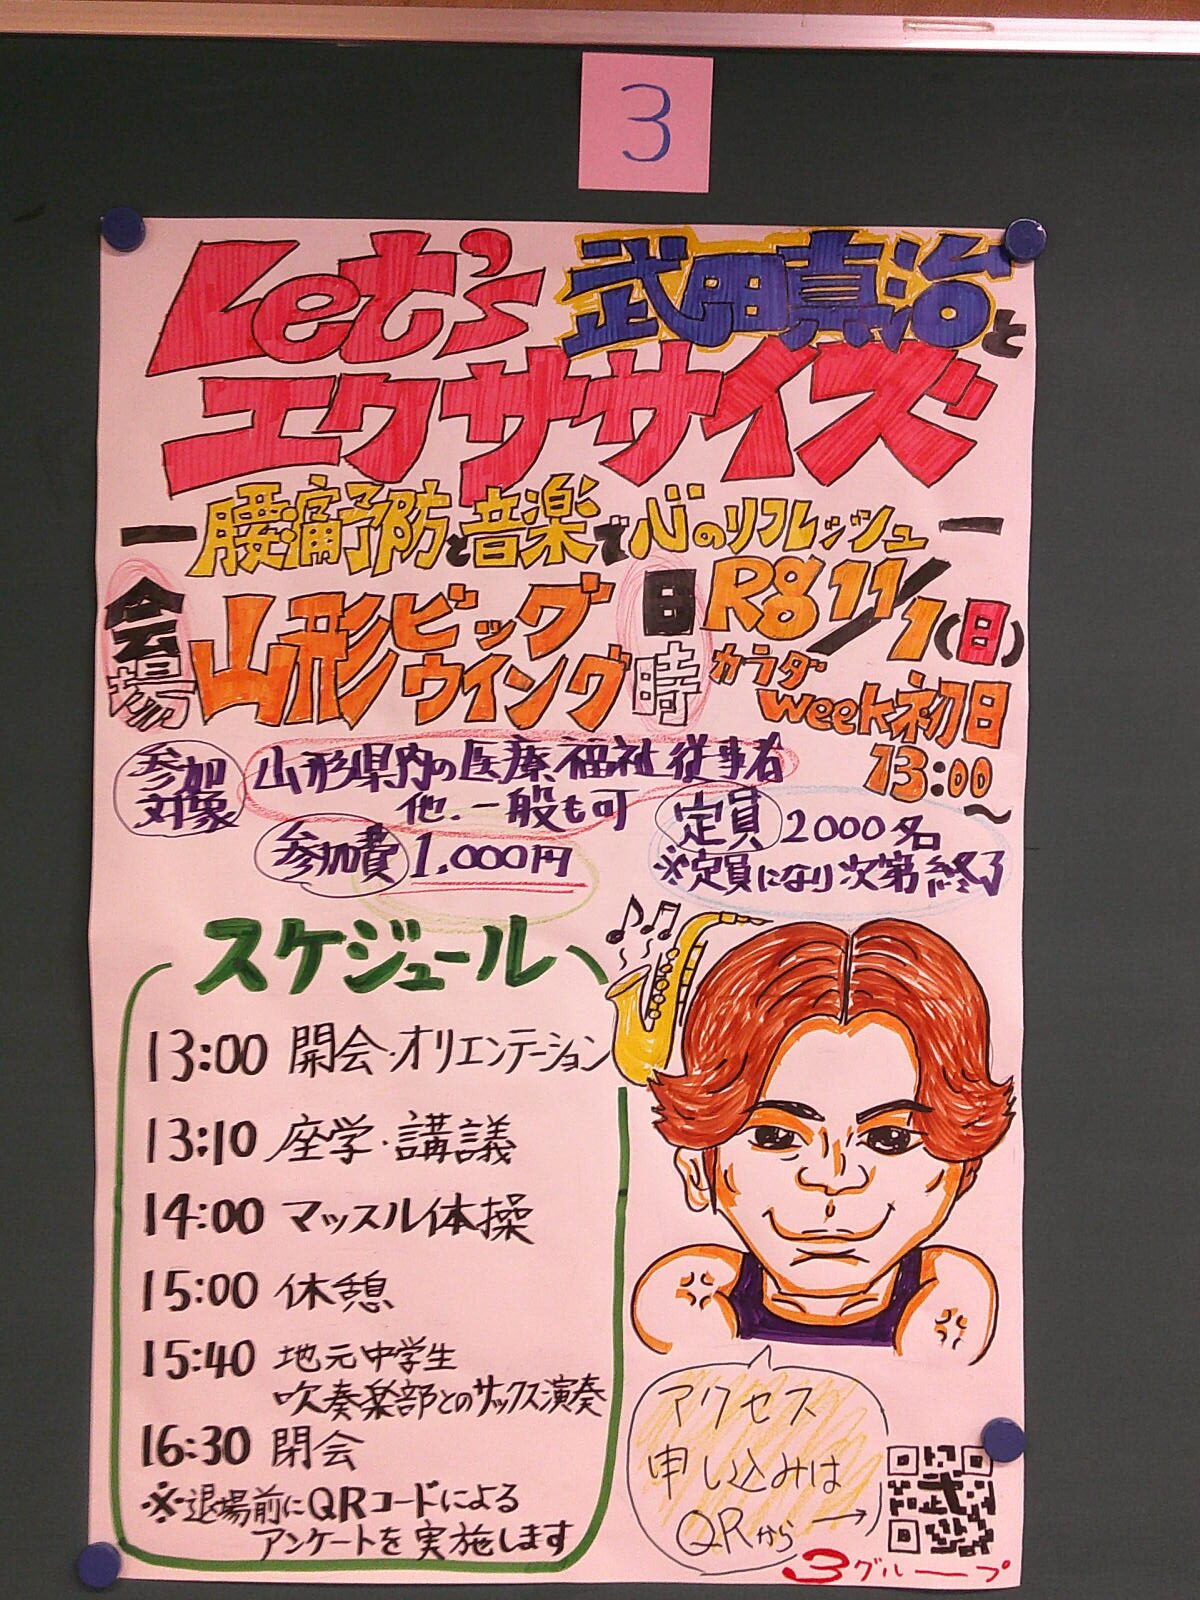 3
Let's 武田真治と
エクササイズ
ー腰痛予防と音楽で心のリフレッシュー
会場 山形ビッグウイング
日時 R8 11/1(日)
カラダweek初日
13:00~
参加対象 山形県内の医療福祉従事者
他.一般も可
定員 2000名
※定員になり次第終了
参加費 1,000円
スケジュール
13:00 開会・オリエンテーション
13:10 座学・講議
14:00 マッスル体操
15:00 休憩
15:40 地元中学生
吹奏楽部とのサックス演奏
16:30 閉会
※退場前にQRコードによる
アンケートを実施します
アクセス
申し込みは
QRから→
3グループ